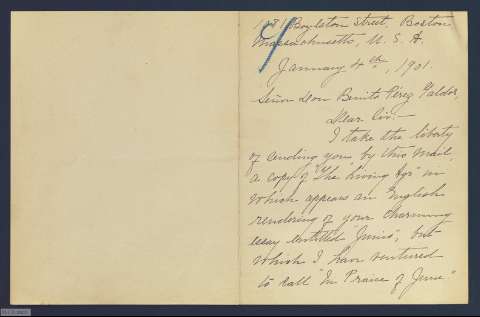 1081 Boylston Street, Boston
Massachusetts, U. S. A.
January 4th, 1901.
Señor Don Benito Pérez Galdós,
Dear Sir:—
I take the liberty
of sending you by this mail,
a copy of "The Living Age" in
which appears an English
rendering of your charming
essay entitled "Junio", but
which I have ventured
to call "In Praise of June."